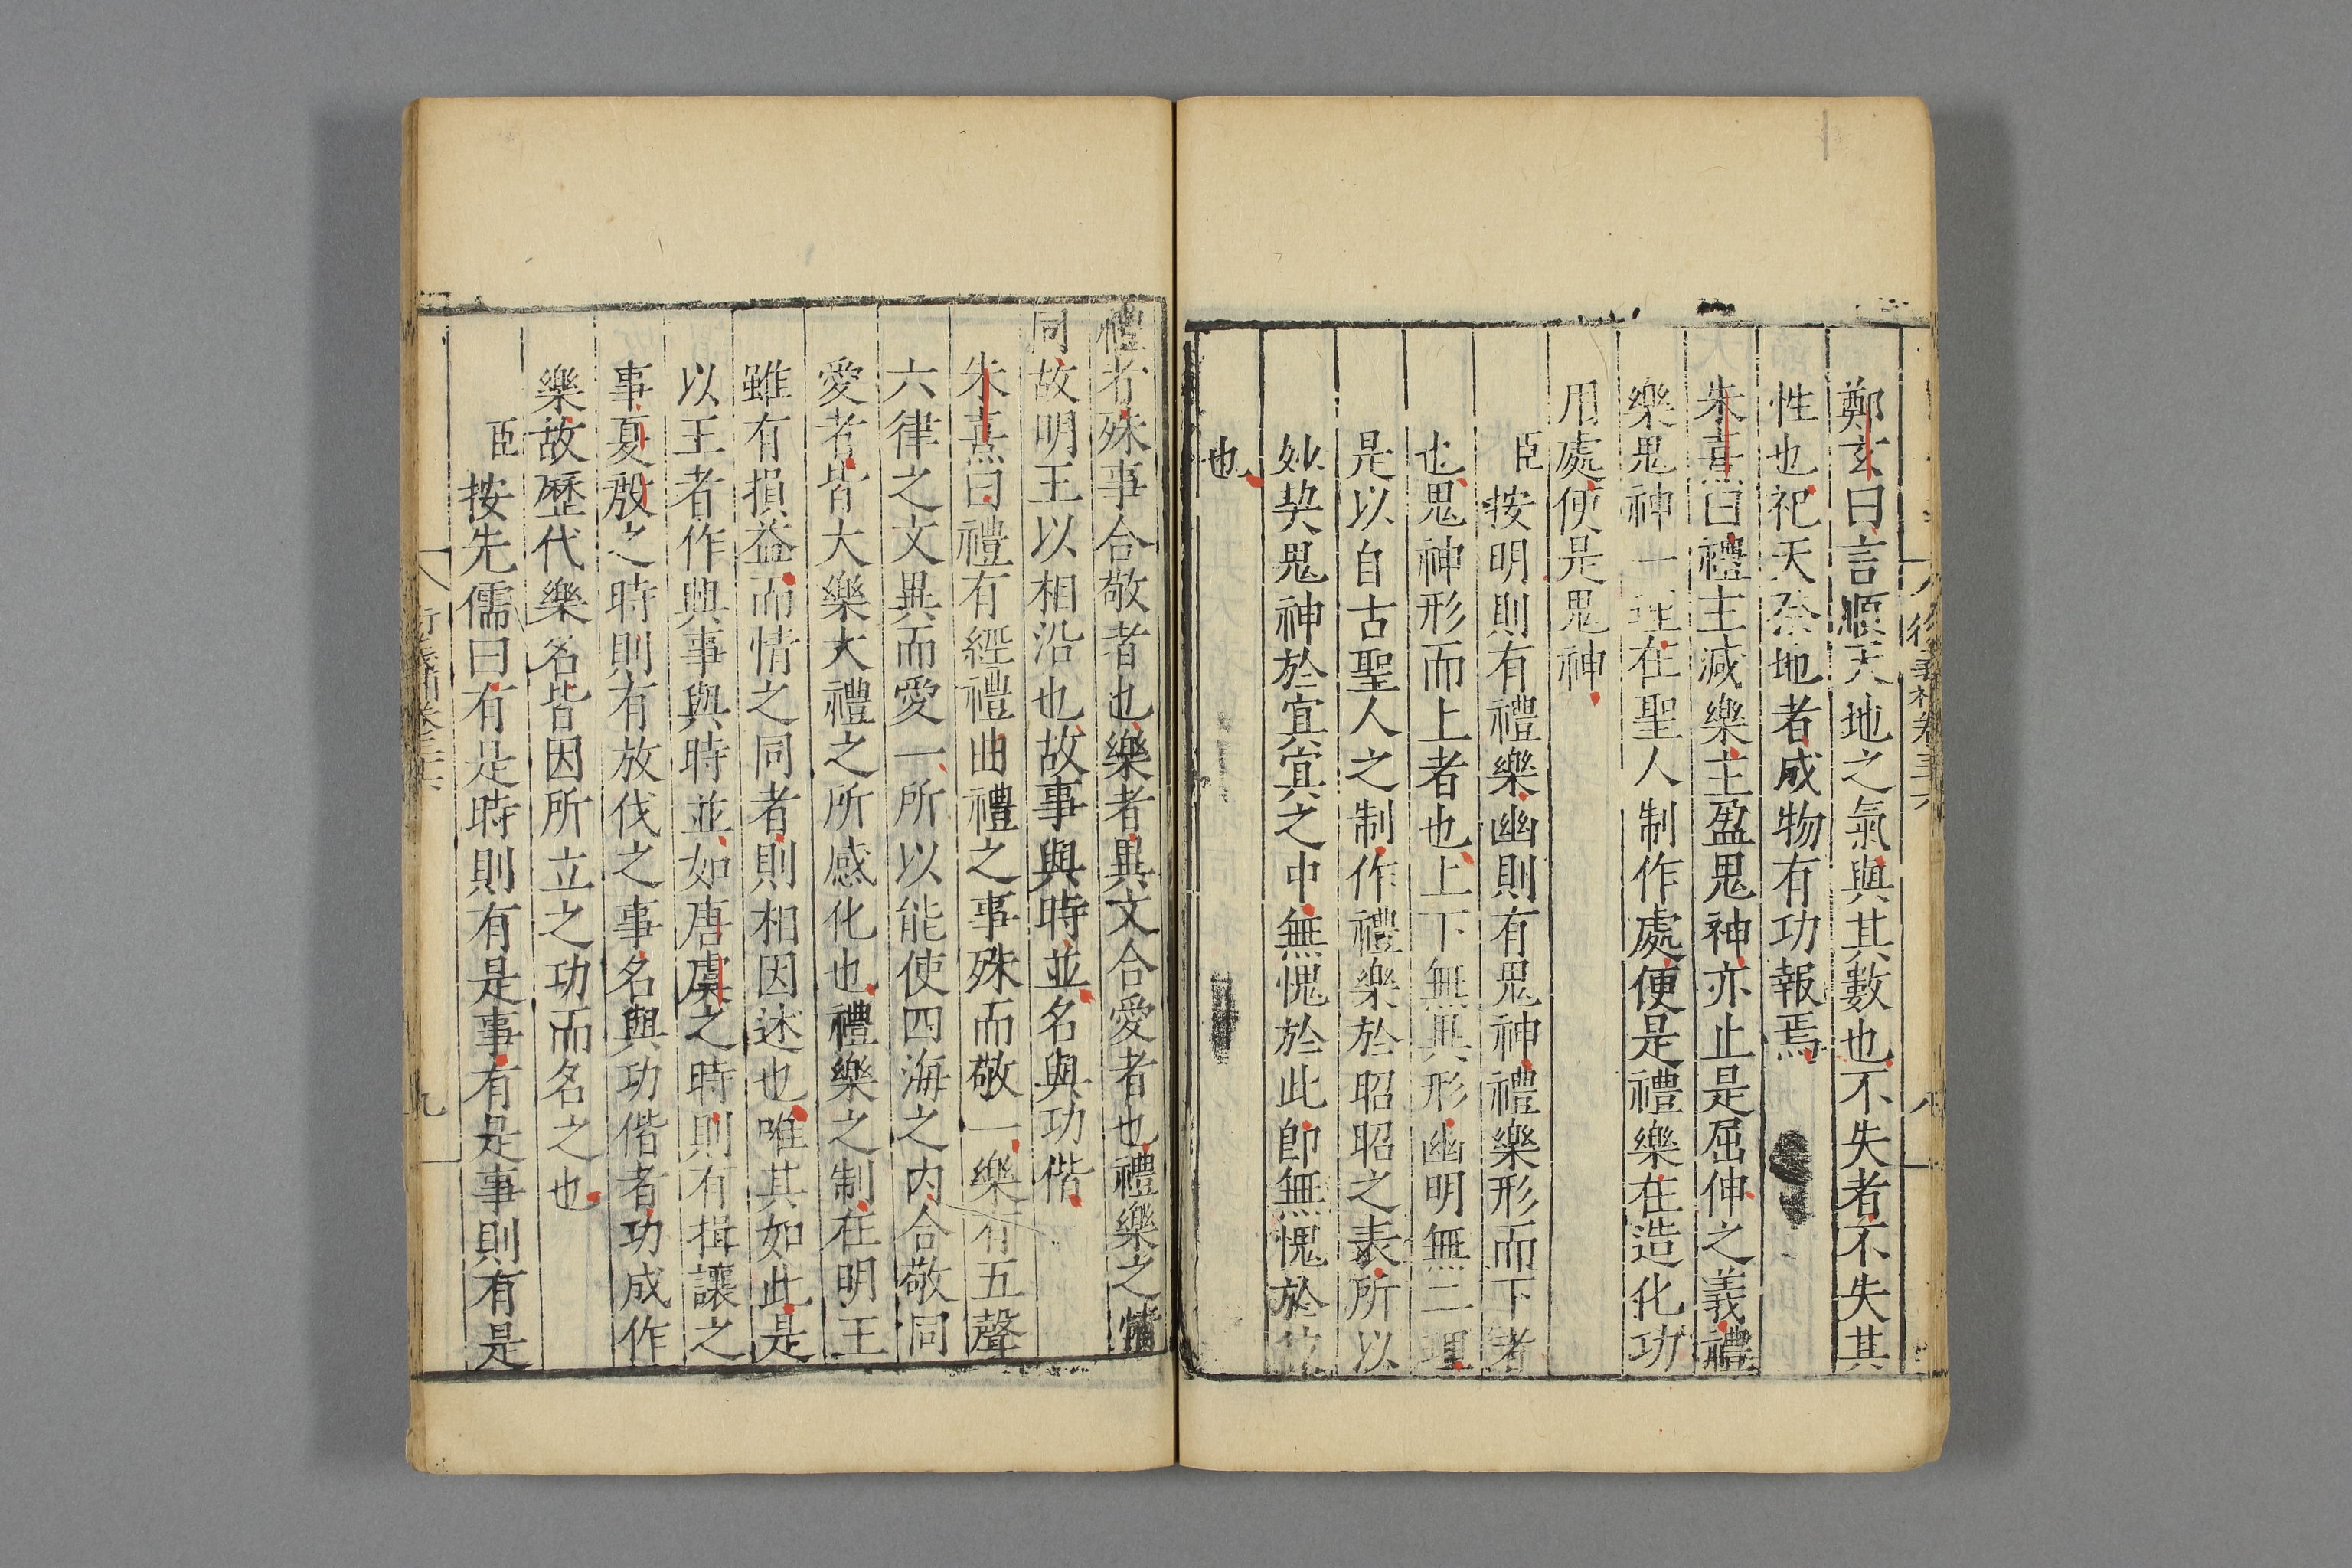 鄭玄曰言順天地之氣與其數也不失者不失其
性也祀天祭地者成物有功報焉
朱熹曰禮主減樂主盈鬼神亦止是屈伸之義禮
樂鬼神一理在聖人制作處便是禮樂在造化功
用處便是鬼神
臣按明則有禮樂幽則有鬼神禮樂形而下者
也鬼神形而上者也上下無異形幽明無二理
是以自古聖人之制作禮樂於昭昭之表所以
妙契鬼神於冥冥之中無愧於此即無愧於
也
禮者殊事合敬者也樂者異文合愛者也禮樂之情
同故明王以相沿也故事與時並名與功偕
朱熹曰禮有經禮曲禮之事殊而敬一樂有五聲
六律之文異而愛一所以能使四海之内合敬同
愛者皆大樂大禮之所感化也禮樂之制在明王
雖有損益而情之同者則相因述也唯其如此是
以王者作與事與時並如唐虞之時則有揖讓之
事夏殷之時則有放伐之事名與功偕者功成作
樂故歷代樂名皆因所立之功而名之也
臣按先儒曰有是時則有是事有是事則有是